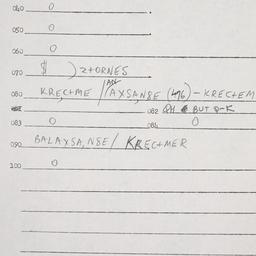 040 0
050 0
060 0
070 $ ) Z+ORNES
080 KRE,C+ME / AXSA,NSE (476) – KREC+EM
082 BUT
083 0 084 0
090 BALAXSA,NSE / KREC+MER
100 0